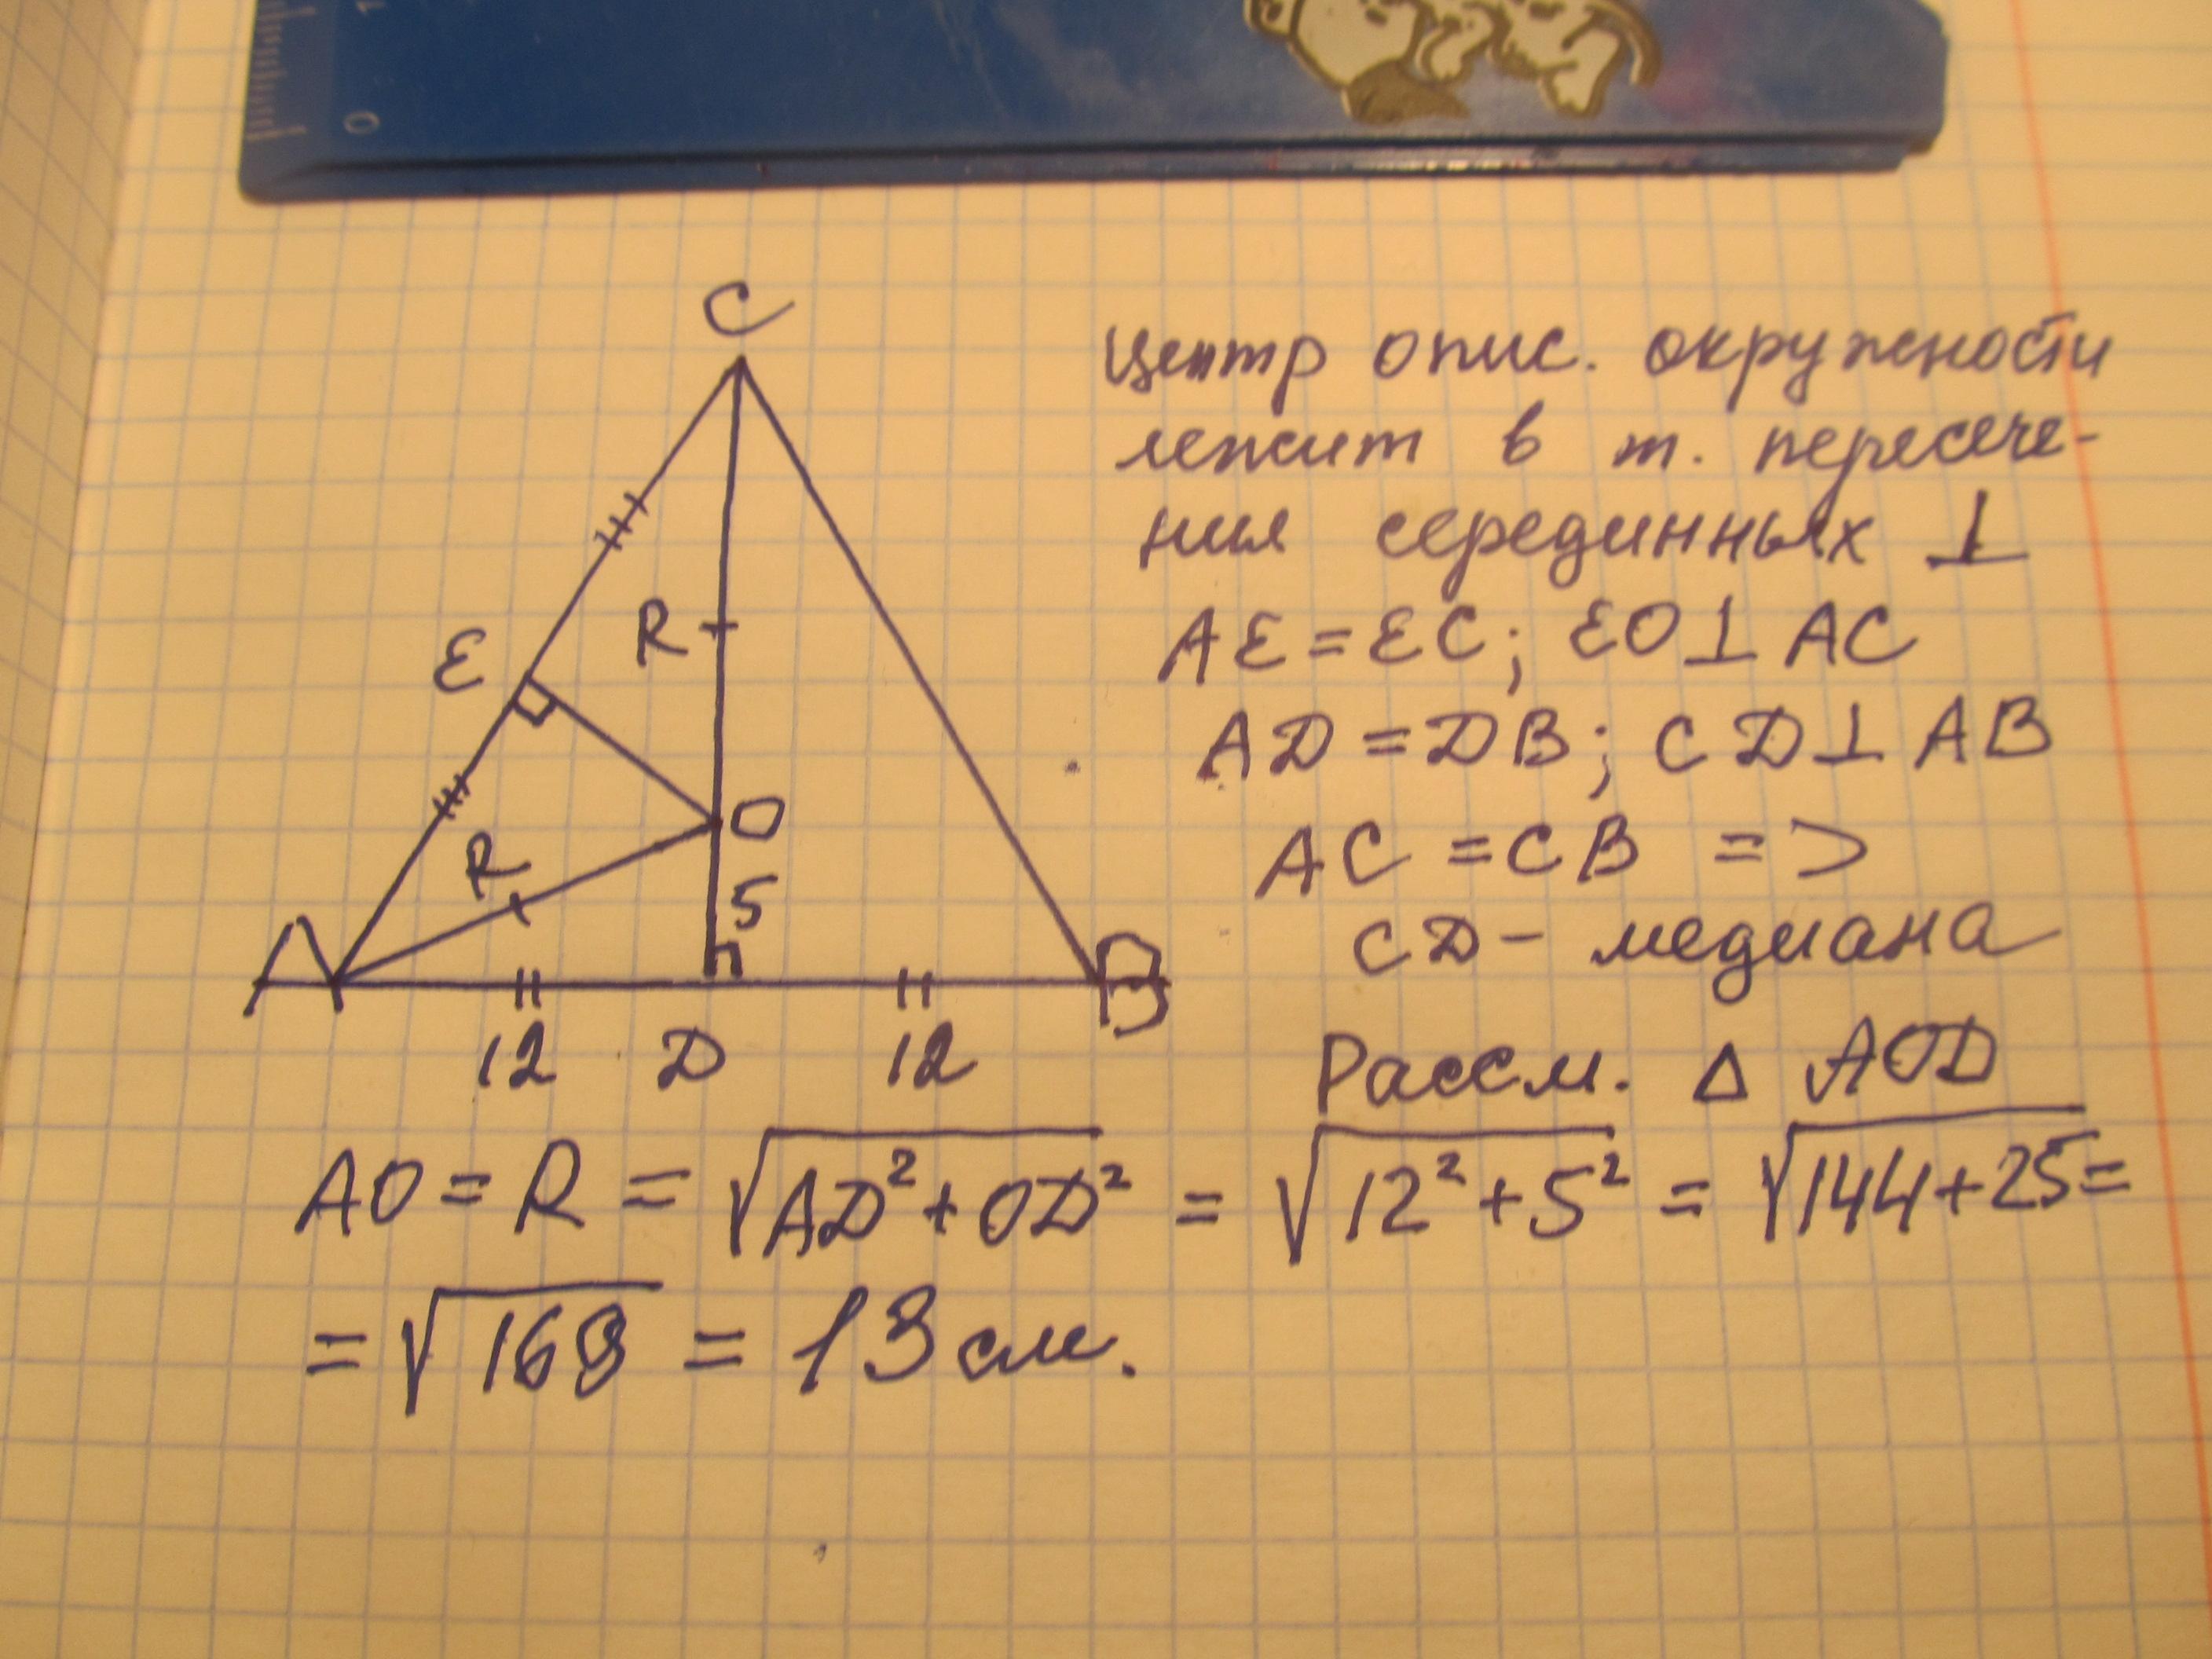 0 1
C
Центр опис. окружности
лежит в т. пересече-
ния серединных ⊥
E R
AE = EC; EO ⊥ AC
AD = DB; CD ⊥ AB
O
R
5
AC = CB =>
CD – медиана
A B
12 D 12
Рассм. Δ AOD
AO = R = √AD² + OD² = √12² + 5² = √144 + 25 =
= √169 = 13 см.